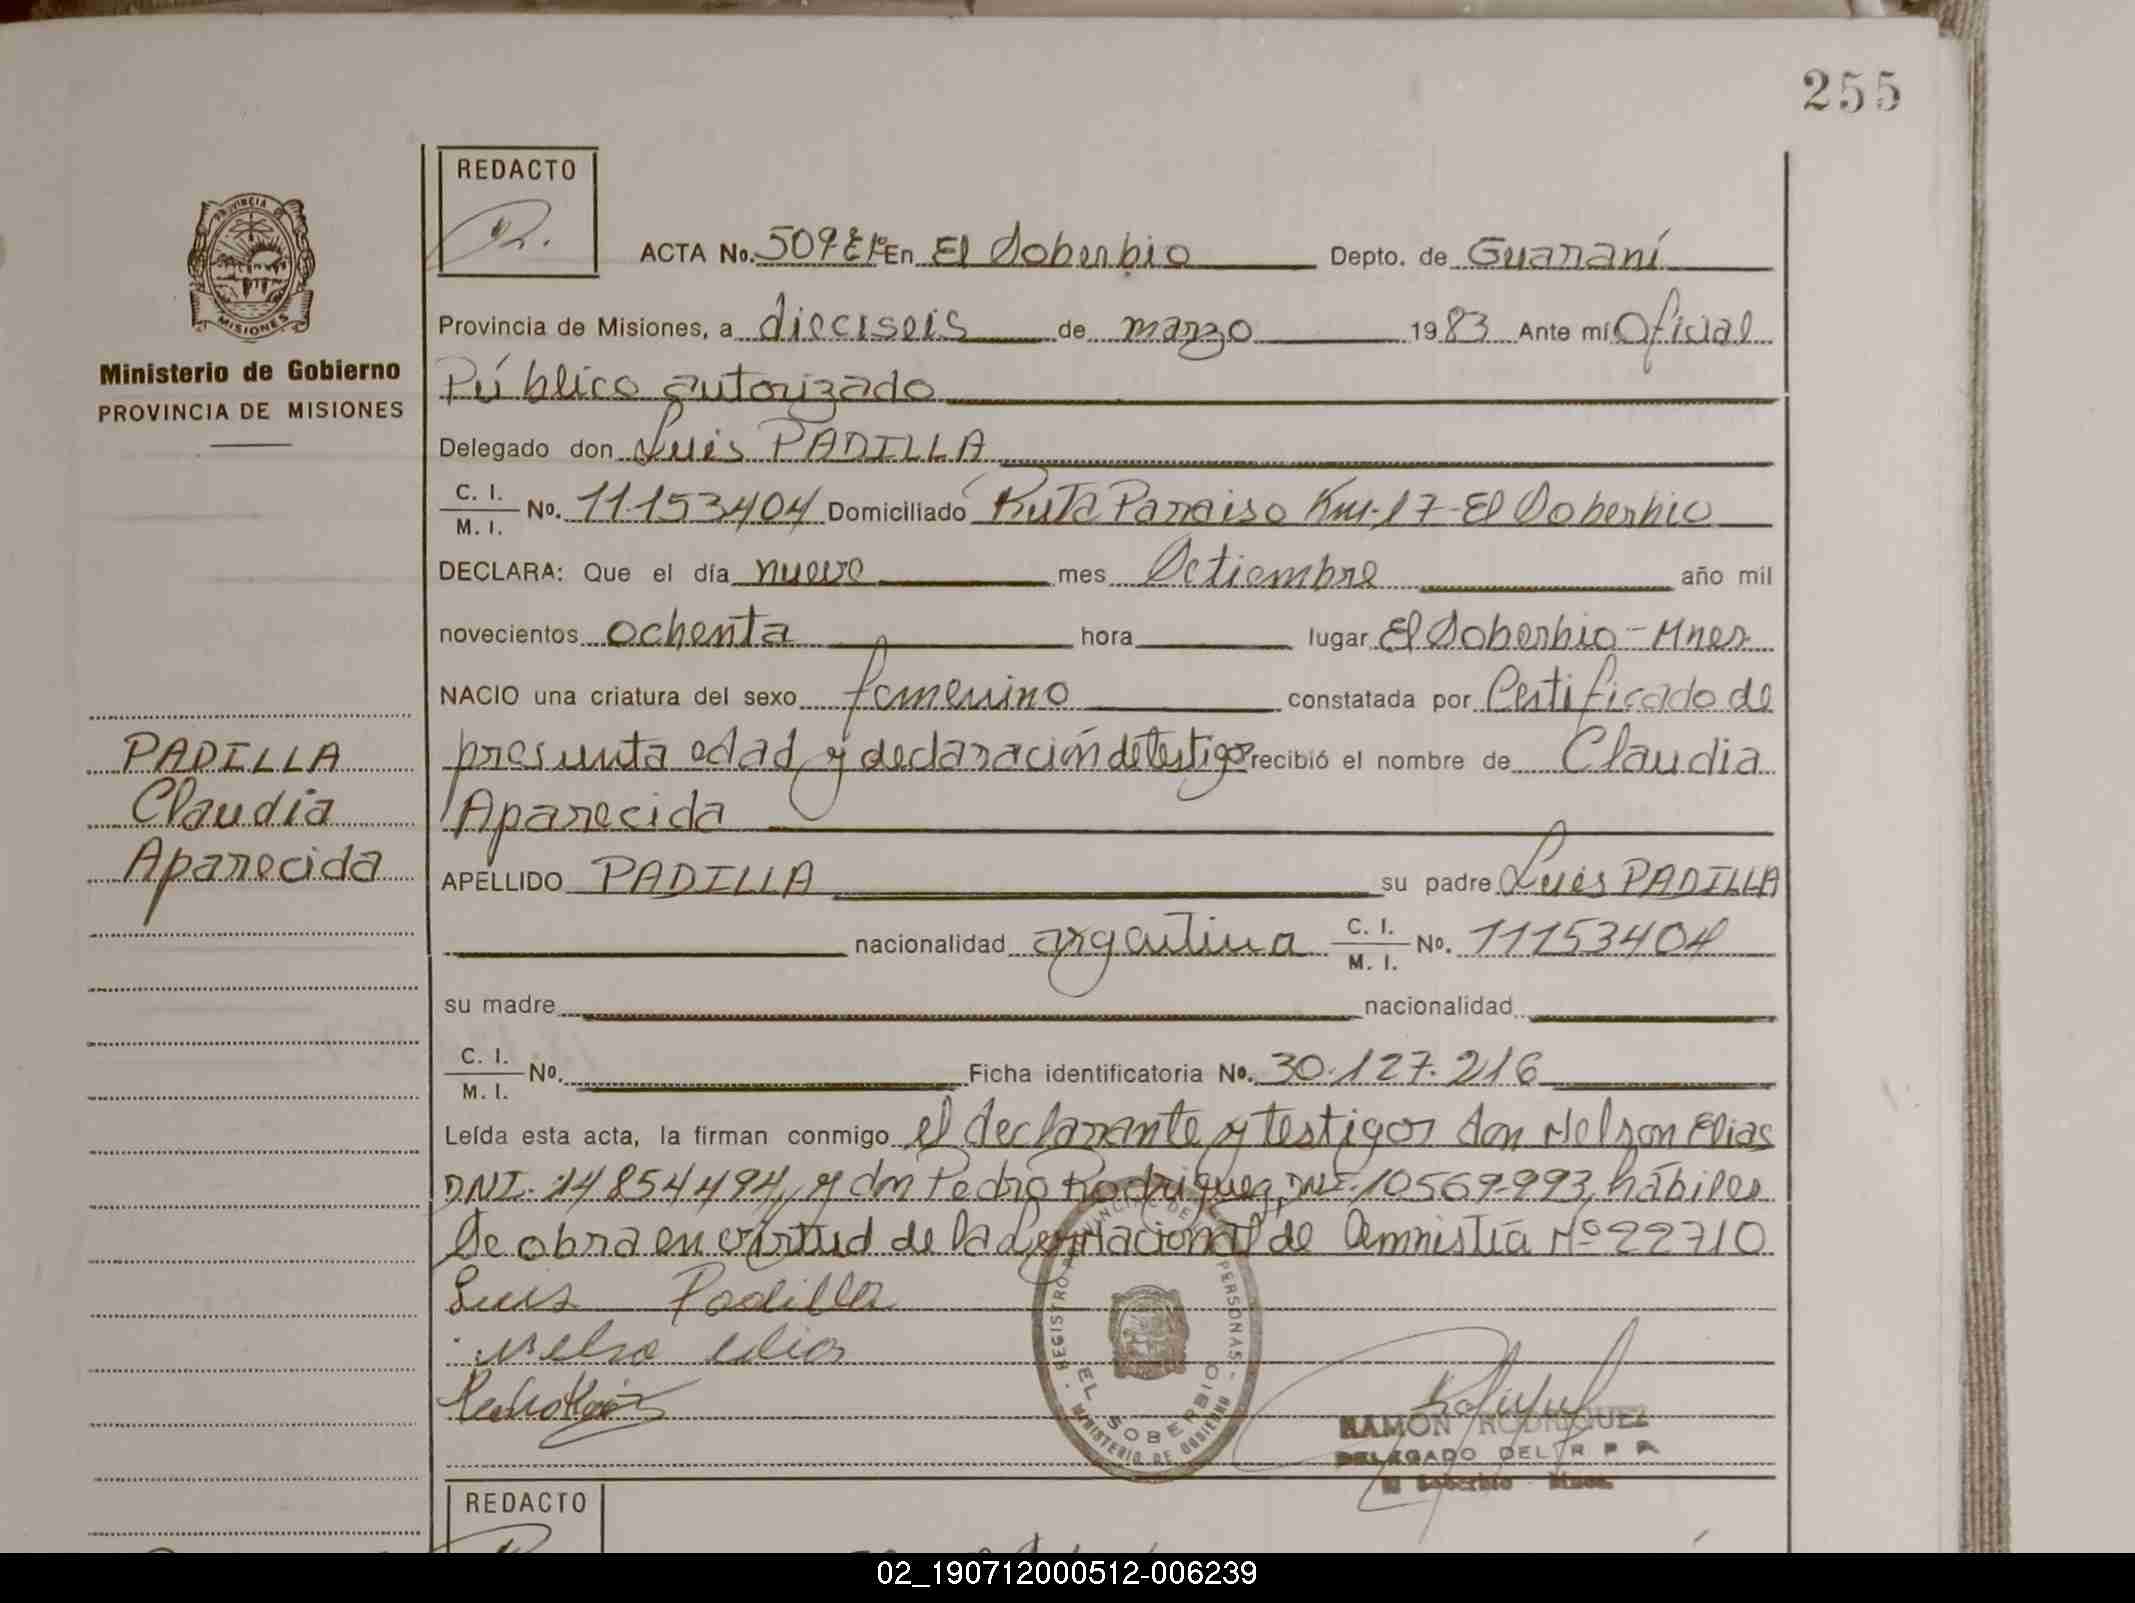 255
REDACTO
PROVINCIA
MISIONES
Ministerio de Gobierno
PROVINCIA DE MISIONES
ACTA No. 509 En El Soberbio Depto. de Guaraní
Provincia de Misiones, a dieciseis de marzo 1983 Ante mí Oficial
Público autorizado
Delegado don Luis PADILLA
C. I.
M. I. No. 11153404 Domiciliado Ruta Paraiso Km-17-El Soberbio
DECLARA: Que el día nueve mes Setiembre año mil
novecientos ochenta hora lugar El Soberbio-Mnes.
NACIO una criatura del sexo femenino constatada por Certificado de
presunta edad y declaración de testigos recibió el nombre de Claudia
Aparecida
APELLIDO PADILLA su padre Luis PADILLA
nacionalidad argentina C. I.
M. I. No. 11153404
su madre nacionalidad
C. I.
M. I. No. Ficha identificatoria No. 30.127.216
Leída esta acta, la firman conmigo el declarante y testigos don Nelson Elias
DNI. 14854494, y don Pedro Rodriguez, DNI. 10569993, hábiles
Se obra en virtud de la Ley Nacional de Amnistía Nº 22710
Luis Padilla
PADILLA
Claudia
Aparecida
REGISTRO PROVINCIAL DE PERSONAS
EL SOBERBIO
MINISTERIO DE GOBIERNO
RAMÓN RODRIGUEZ
DELEGADO DEL R P P
El Soberbio - Mnes.
REDACTO
02_190712000512-006239